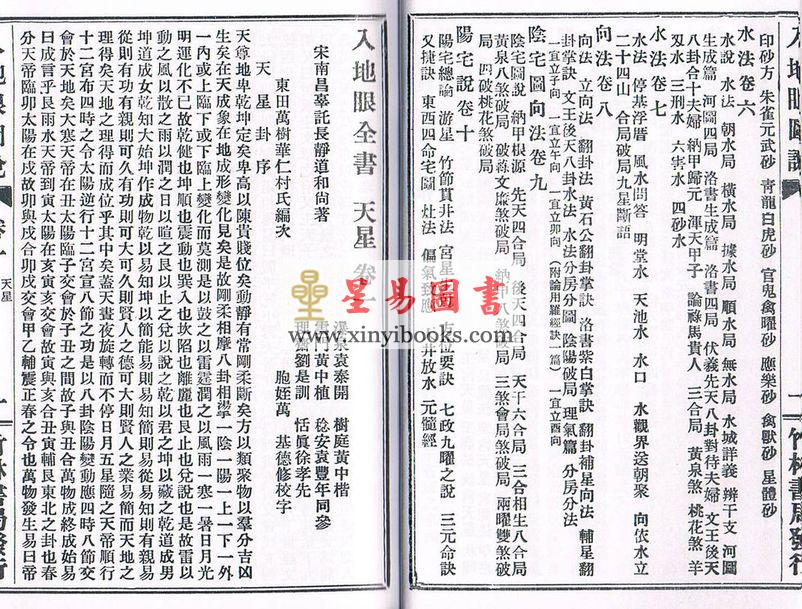 入地眼圖說
竹林書局發行
印砂方 朱雀元武砂 青龍白虎砂 官鬼禽曜砂 應樂砂 禽獸砂 星體砂
水法卷六
水說 水法 朝水局 橫水局 據水局 順水局 無水局 水城詳義 辨干支 河圖
生成篇 河圖四局 洛書生成篇 洛書四局 伏羲先天八卦對待夫婦 文王後天
八卦合十夫婦 納甲歸元 渾天甲子 論祿馬貴人 三合局 黃泉煞 桃花煞 羊
刄水 三刑水 六害水 四砂水
水法卷七
水法 停基浮厝 風水問答 明堂水 天池水 水口 水觀界送朝聚 向依水立
二十四山 合局破局九星斷語
向法卷八
向法 立向法 翻卦法 黃石公翻卦掌訣 洛書紫白掌訣 翻卦補星向法 輔星翻
卦掌訣 文王後天八卦水法 水法分房分圖 陰陽破局 理氣篇 分房分法
一宜立子向 一宜立午向 一宜立卯向(附論用羅經訣一篇) 一宜立酉向
陰宅圖向法卷九
陰宅圖說 納甲根源 先天四合局 後天四合局 天干六合局 三合相生八合局
黃泉八煞破局 文廉煞破局 八煞局 三煞會局煞局 兩曜雙煞破
局 四破桃花煞破局
陽宅說卷十
陽宅總論 游星 竹節貫井法 宮星 方位要訣 七政九曜之說 三元命訣
又捷訣 東西四命宅圖 灶法 偏氣致應 井放水 元髓經
星易圖書
www.xinyibooks.com
入地眼全書 天星 卷一
宋南昌辜託長靜道和尚著
瀑泉袁泰開 樹庭黃中楷
雷門黃中植 稔安袁豐年同參
理齋劉是訓 恬眞徐孝先
東田萬樹華仁村氏編次 胞姪萬 基德修校字
天星卦序
天尊地卑乾坤定矣卑高以陳貴賤位矣動靜有常剛柔斷矣方以類聚物以羣分吉凶
生矣在天成象在地成形變化見矣是故剛柔相摩八卦相盪一陰一陽一上一下一外
一內或上臨下或下臨上變化而莫測是以鼓之以雷霆潤之以風雨一寒一暑日月光
明運化不已故乾健也坤順也震動也巽入也坎陷也離麗也艮止也兌說也是故雷以
動之風以散之雨以潤之日以暄之艮以止之兌以說之乾以君之坤以藏之乾道成男
坤道成女乾知大始坤作成物乾以易知坤以簡能易則易知簡則易從易知則有親易
從則有功有親則可久有功則可大可久則賢人之德可大則賢人之業易簡而天地之
理得矣天地之理得而成位乎其中矣盖天晝夜旋轉而不停日月五星隨之天帝順行
十二宮布四時之令太陽逆行十二宮宣八節之功是以八卦陰陽變動應四時八節交
會於天地矣大寒天帝在丑太陽臨子交會於子丑之間故子與丑合萬物成終成始易
曰成言乎艮雨水天帝到寅太陽在亥寅亥交會故寅與亥合丑寅輔艮東北之卦也春
分天帝臨卯太陽在戌故卯與戌合卯戌交會甲乙輔震正春之令也萬物發生易曰帝
天星
竹林書局發行